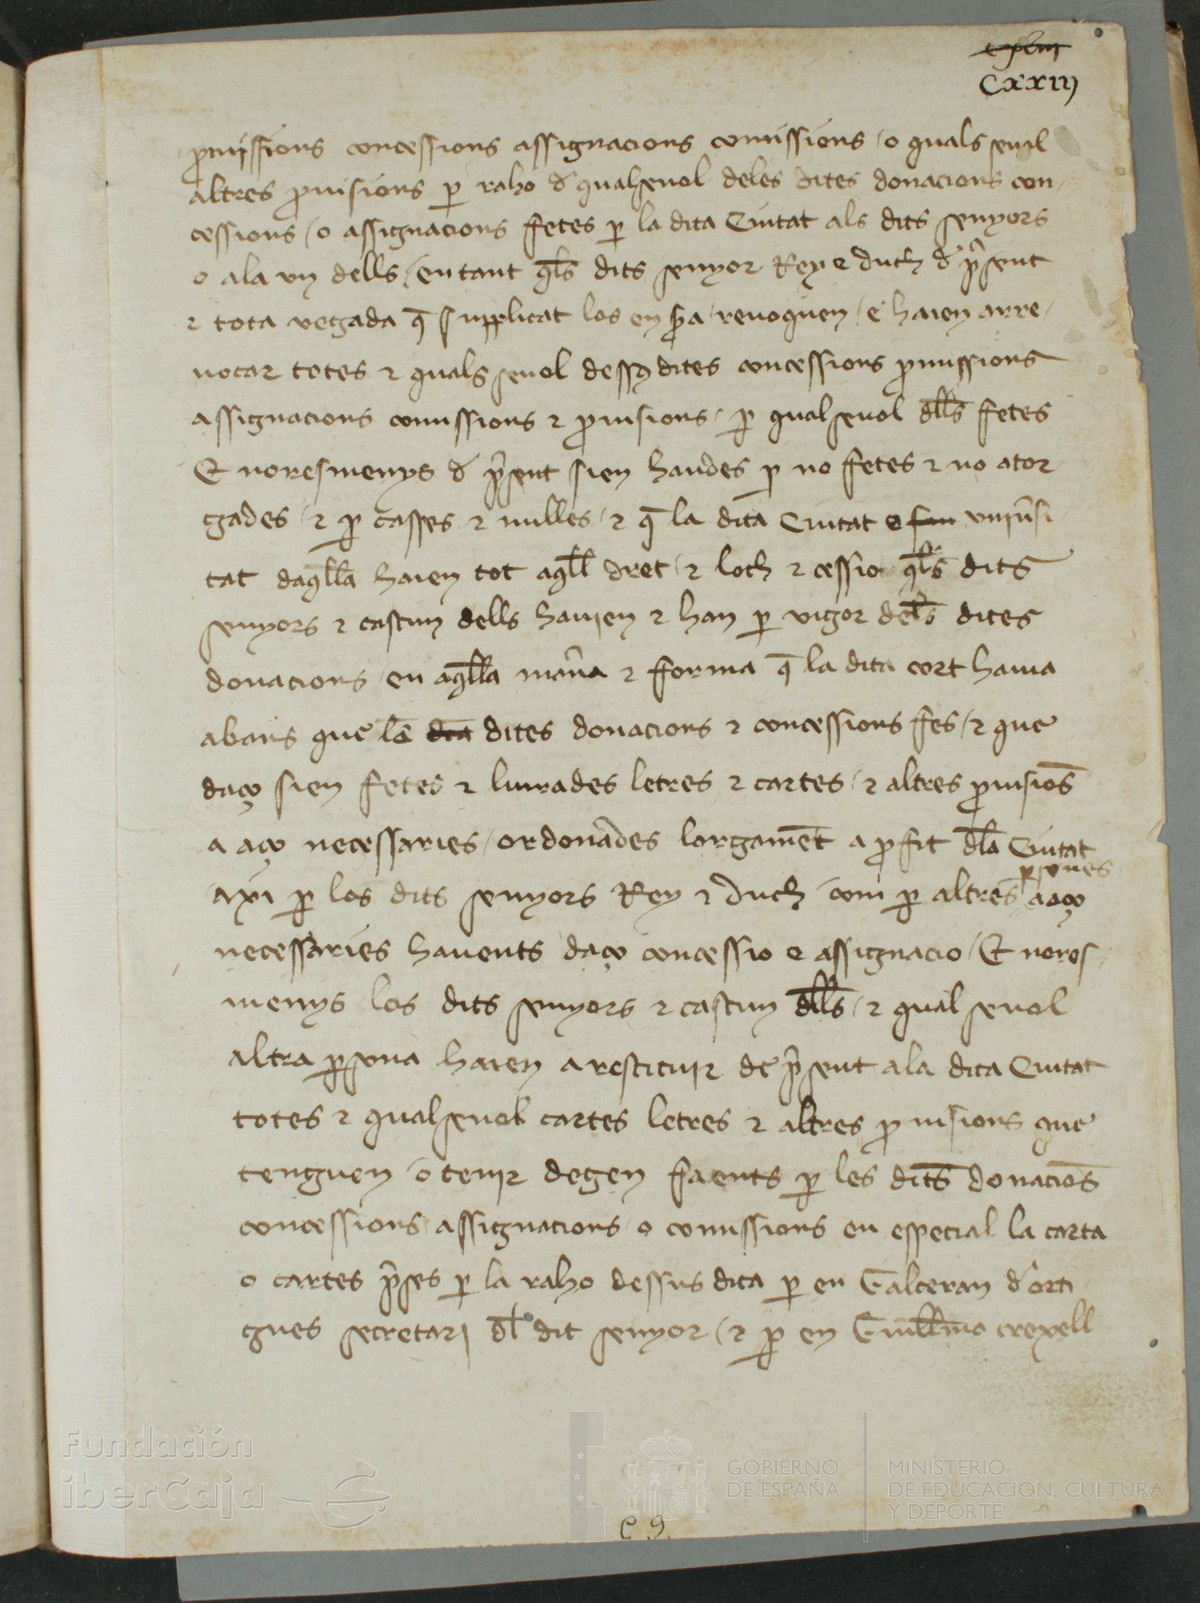 CXXIII
promissions concessions assignacions comissions / o quals sevol
altres provisions p raho d qualsevol deles dites donacions con
cessions / o assignacions fetes p la dita Ciutat als dits senyors
o ala un dells / en tant qls dits senyor Rey e duch d present
z tota vegada q supplicat los en sia / revoquen / e haien arre
vocar totes z quals sevol dessus dites concessions promissions
assignacions comissions z provisions / p qualsevol dlls fetes
Et noresmenys d present sien haudes p no fetes z no ator
gades / z p casses z nulles / z q la dita Ciutat universi
tat daqlla haien tot aqll dret / z loch z cessio qls dits
senyors z cascun dells havien z han p vigor dels dites
donacions / en aqlla manera z forma q la dita cort havia
abans que les dites donacions z concessions fes / z que
daço sien fetes z liurades letres z cartes / z altres provisions
a aço necessaries / ordonades largament a profit dla Ciutat
axi p los dits senyors Rey z duch com p altres persones aaço
necessaries havents daço concessio e assignacio / Et nores
menys los dits senyors z cascun dlls / z qual sevol
altra persona haien arestituir de present ala dita Ciutat
totes z qualsevol cartes letres z altres provisions que
tenguen o tenir degen faents p les dits donacions
concessions assignacions o comissions en especial la carta
o cartes preses p la raho dessus dita p en Galceran dorti
gues secretari dl dit senyor / z p en Guillmo crexell
C 9.
Fundación
iberCaja
GOBIERNO
DE ESPAÑA
MINISTERIO
DE EDUCACIÓN, CULTURA
Y DEPORTE